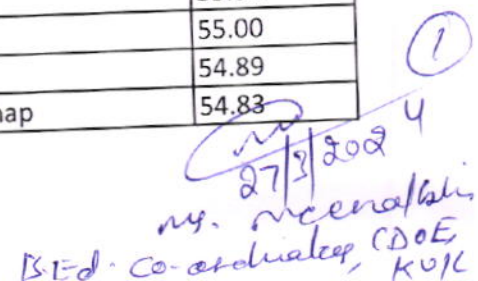 55.00
54.89
54.83
1
27/3/2024
Ms. Meenakshi
B.Ed. Co-ordinator, CDOE,
KUK